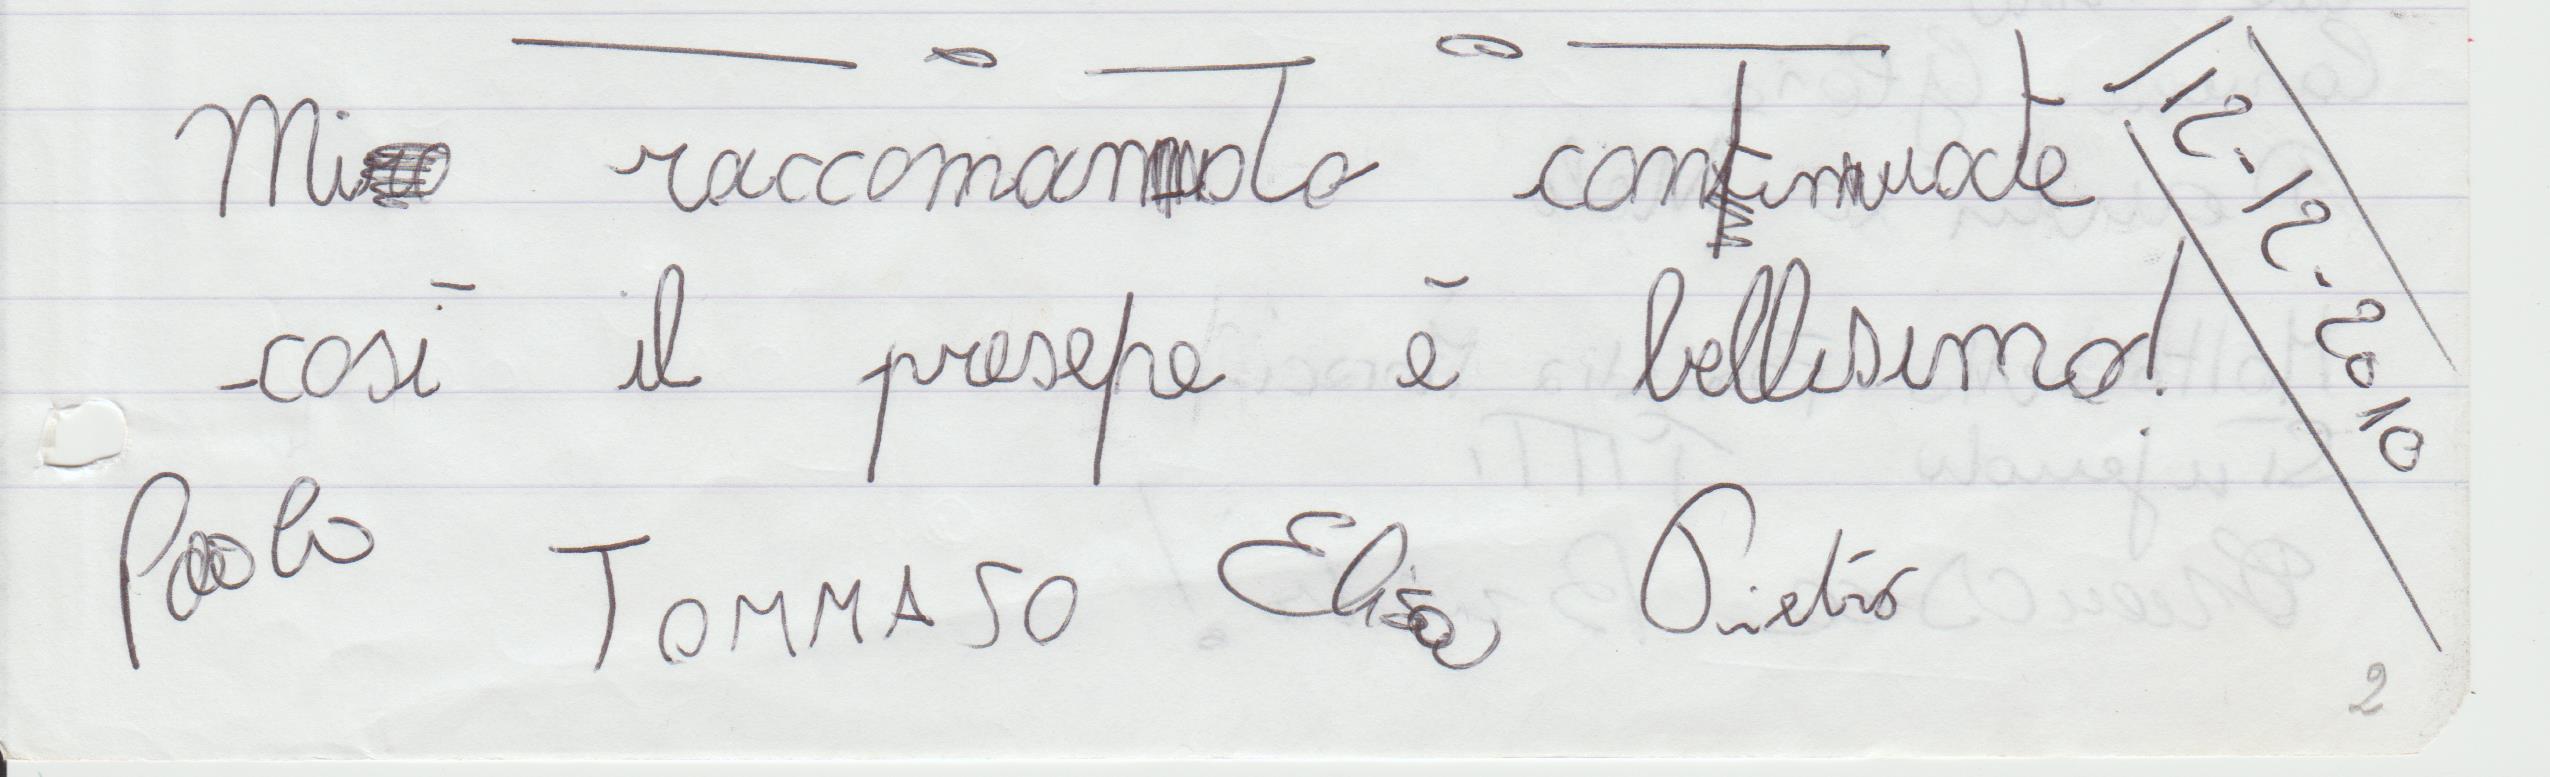 Mi raccomando continuate
così il presepe è bellisimo!
Paolo TOMMASO Elisa Pietro
12.12.2010
2